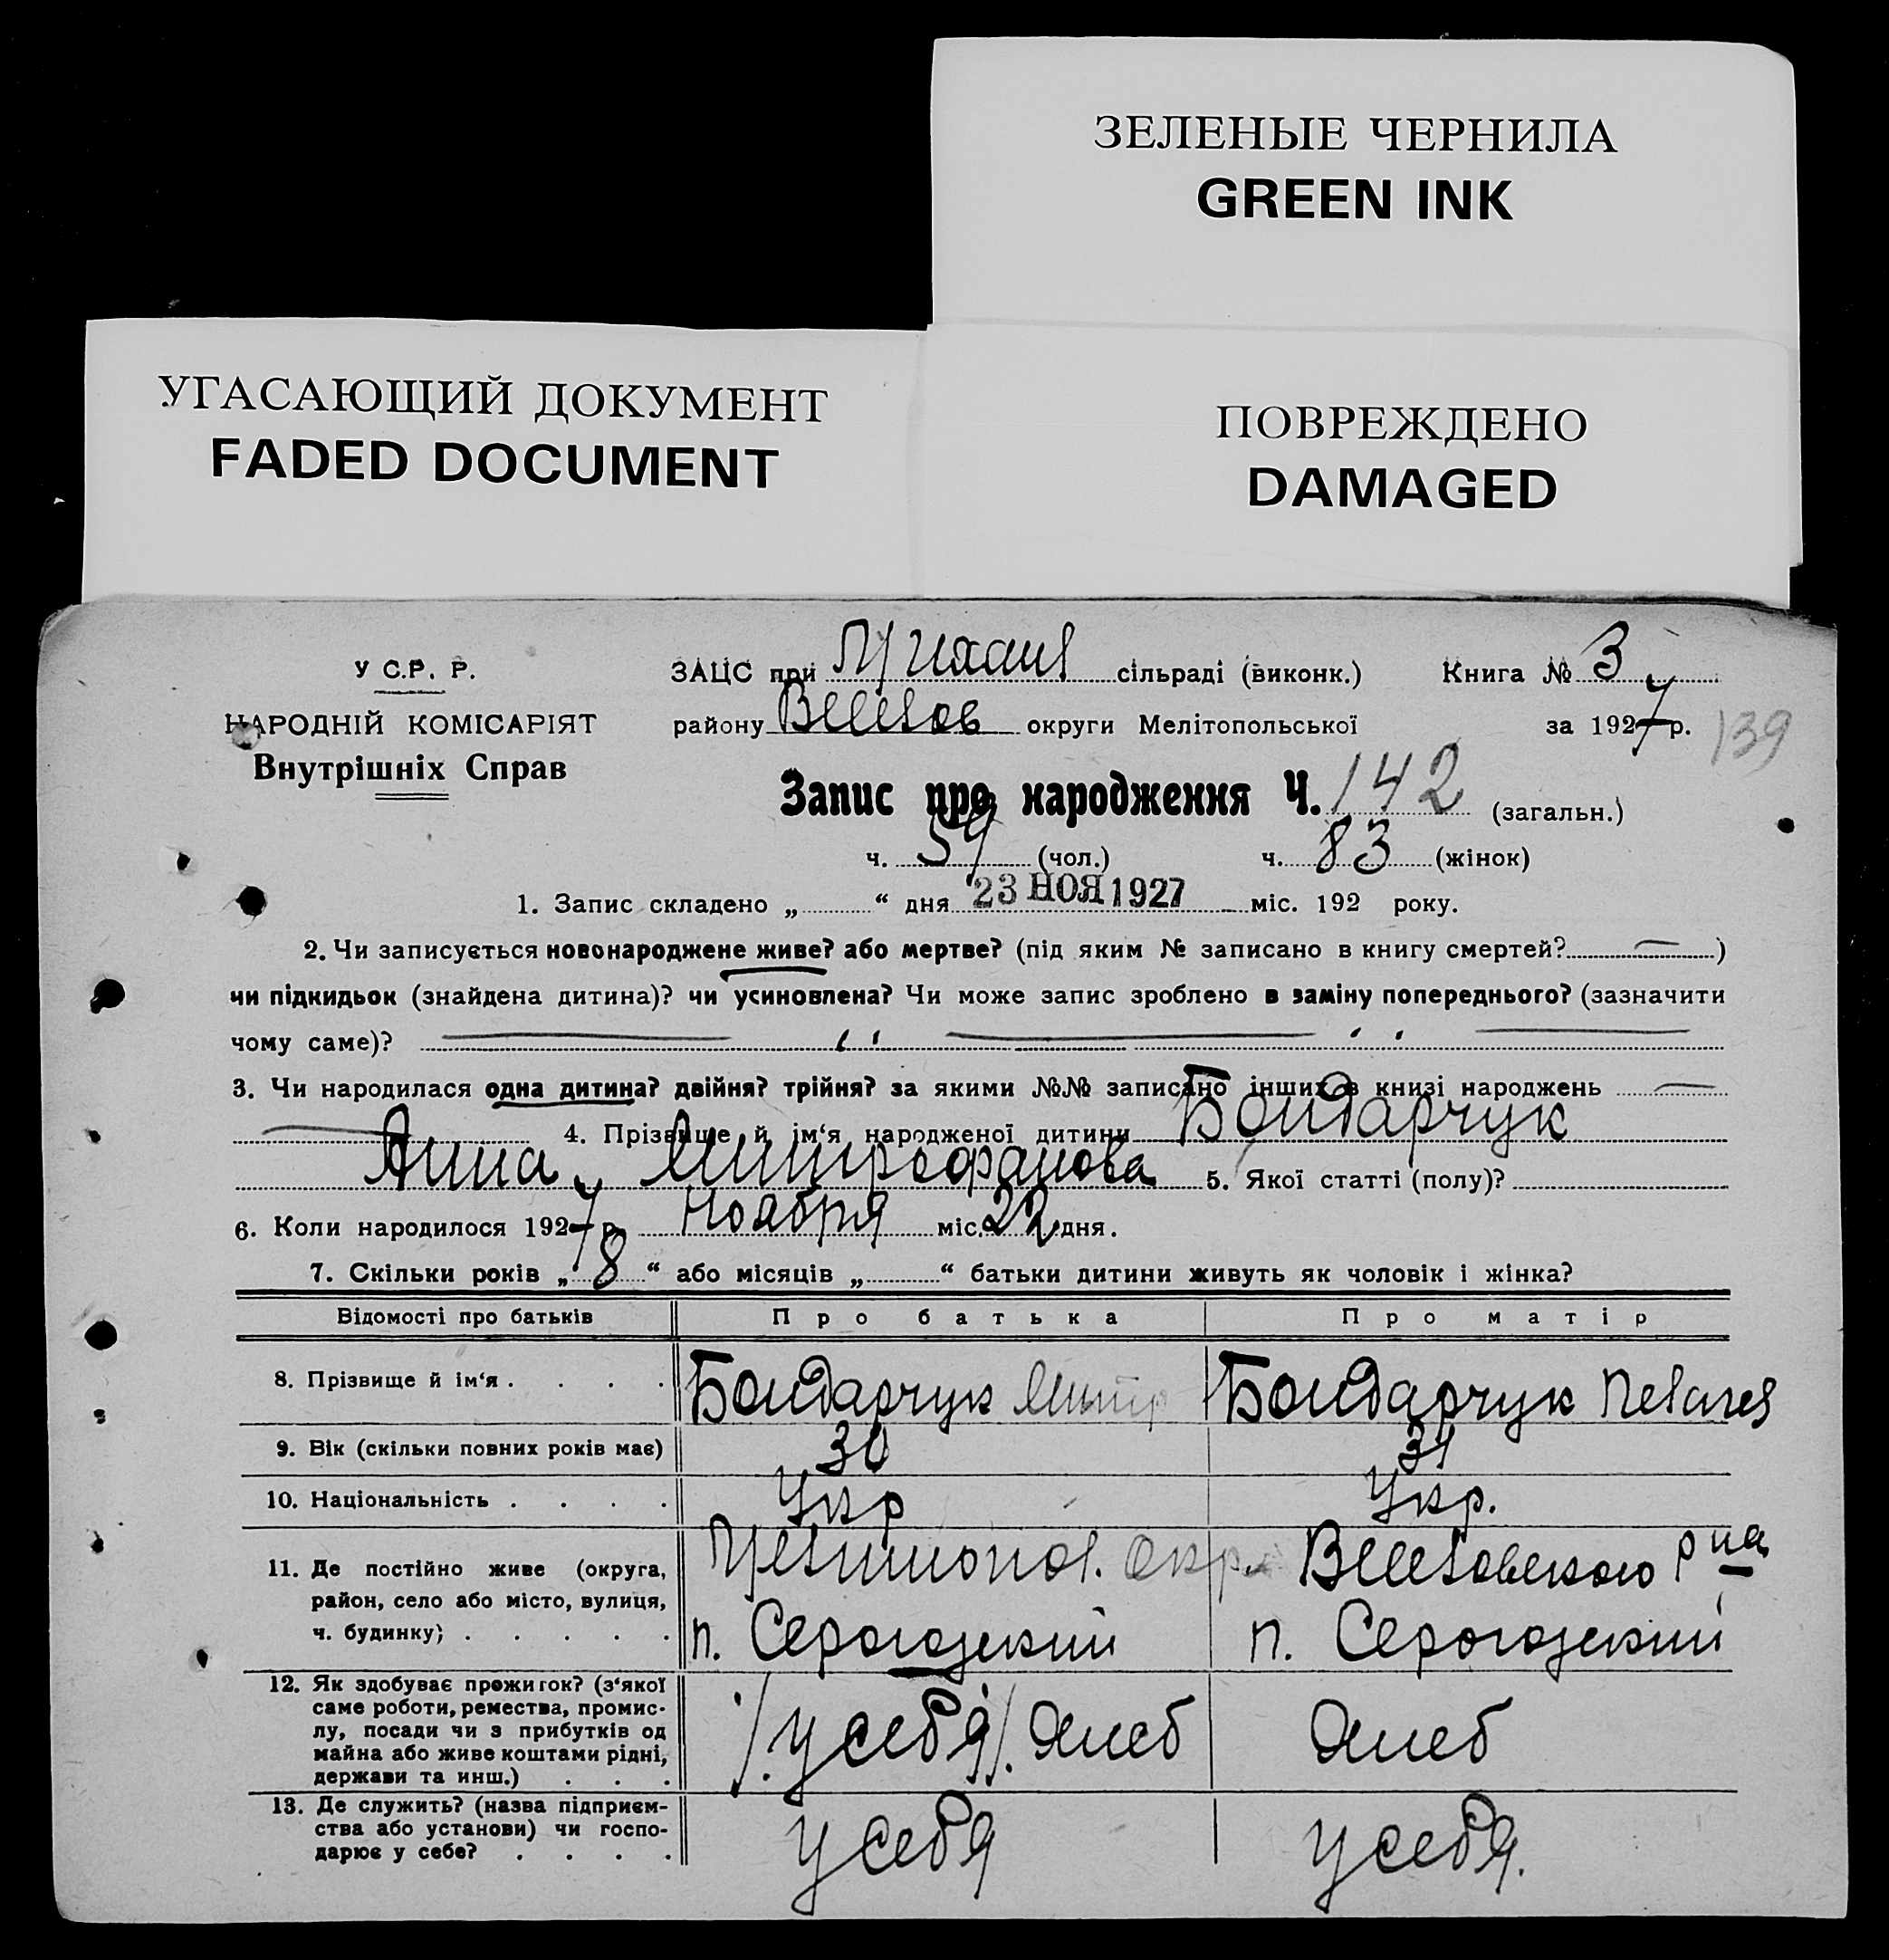 ЗЕЛЕНЫЕ ЧЕРНИЛА
GREEN INK
УГАСАЮЩИЙ ДОКУМЕНТ
FADED DOCUMENT
ПОВРЕЖДЕНО
DAMAGED
У С.Р. Р.
НАРОДНІЙ КОМІСАРІЯТ
Внутрішніх Справ
ЗАЦС при сільраді (виконк.) Книга № 3
району округи Мелітопольської за 1927 р. 139
Запис про народження Ч. 142 (загальн.)
ч. 59 (чол.) ч. 83 (жінок)
1. Запис складено „ “ дня 23 НОЯ 1927 міс. 192 року.
2. Чи записується новонароджене живе? або мертве? (під яким № записано в книгу смертей? — )
чи підкидьок (знайдена дитина)? чи усиновлена? Чи може запис зроблено в заміну попереднього? (зазначити
чому саме)?
3. Чи народилася одна дитина? двійня? трійня? за якими №№ записано інших в книзі народжень —
4. Прізвище й ім‘я народженої дитини Бондарчук
Анна Митрофанова 5. Якої статті (полу)?
6. Коли народилося 1927 р. Ноября міс. 22 дня.
7. Скільки років „ 8 “ або місяців „ “ батьки дитини живуть як чоловік і жінка?
Відомості про батьків Про батька Про матір
8. Прізвище й ім‘я . . . . Бондарчук Митр Бондарчук
9. Вік (скільки повних років має) 30 31
10. Національність . . . . Укр Укр.
11. Де постійно живе (округа,
район, село або місто, вулиця,
ч. будинку) . . . . .
Окр. р на
п. Серогозский п. Серогозский
12. Як здобуває прожиток? (з‘якої
саме роботи, ремества, промис-
лу, посади чи з прибутків од
майна або живе коштами рідні,
держави та инш.) . . .
/у себя/. Хлеб Хлеб
13. Де служить? (назва підприєм-
ства або установи) чи госпо-
дарює у себе? . . . .
у себя у себя.